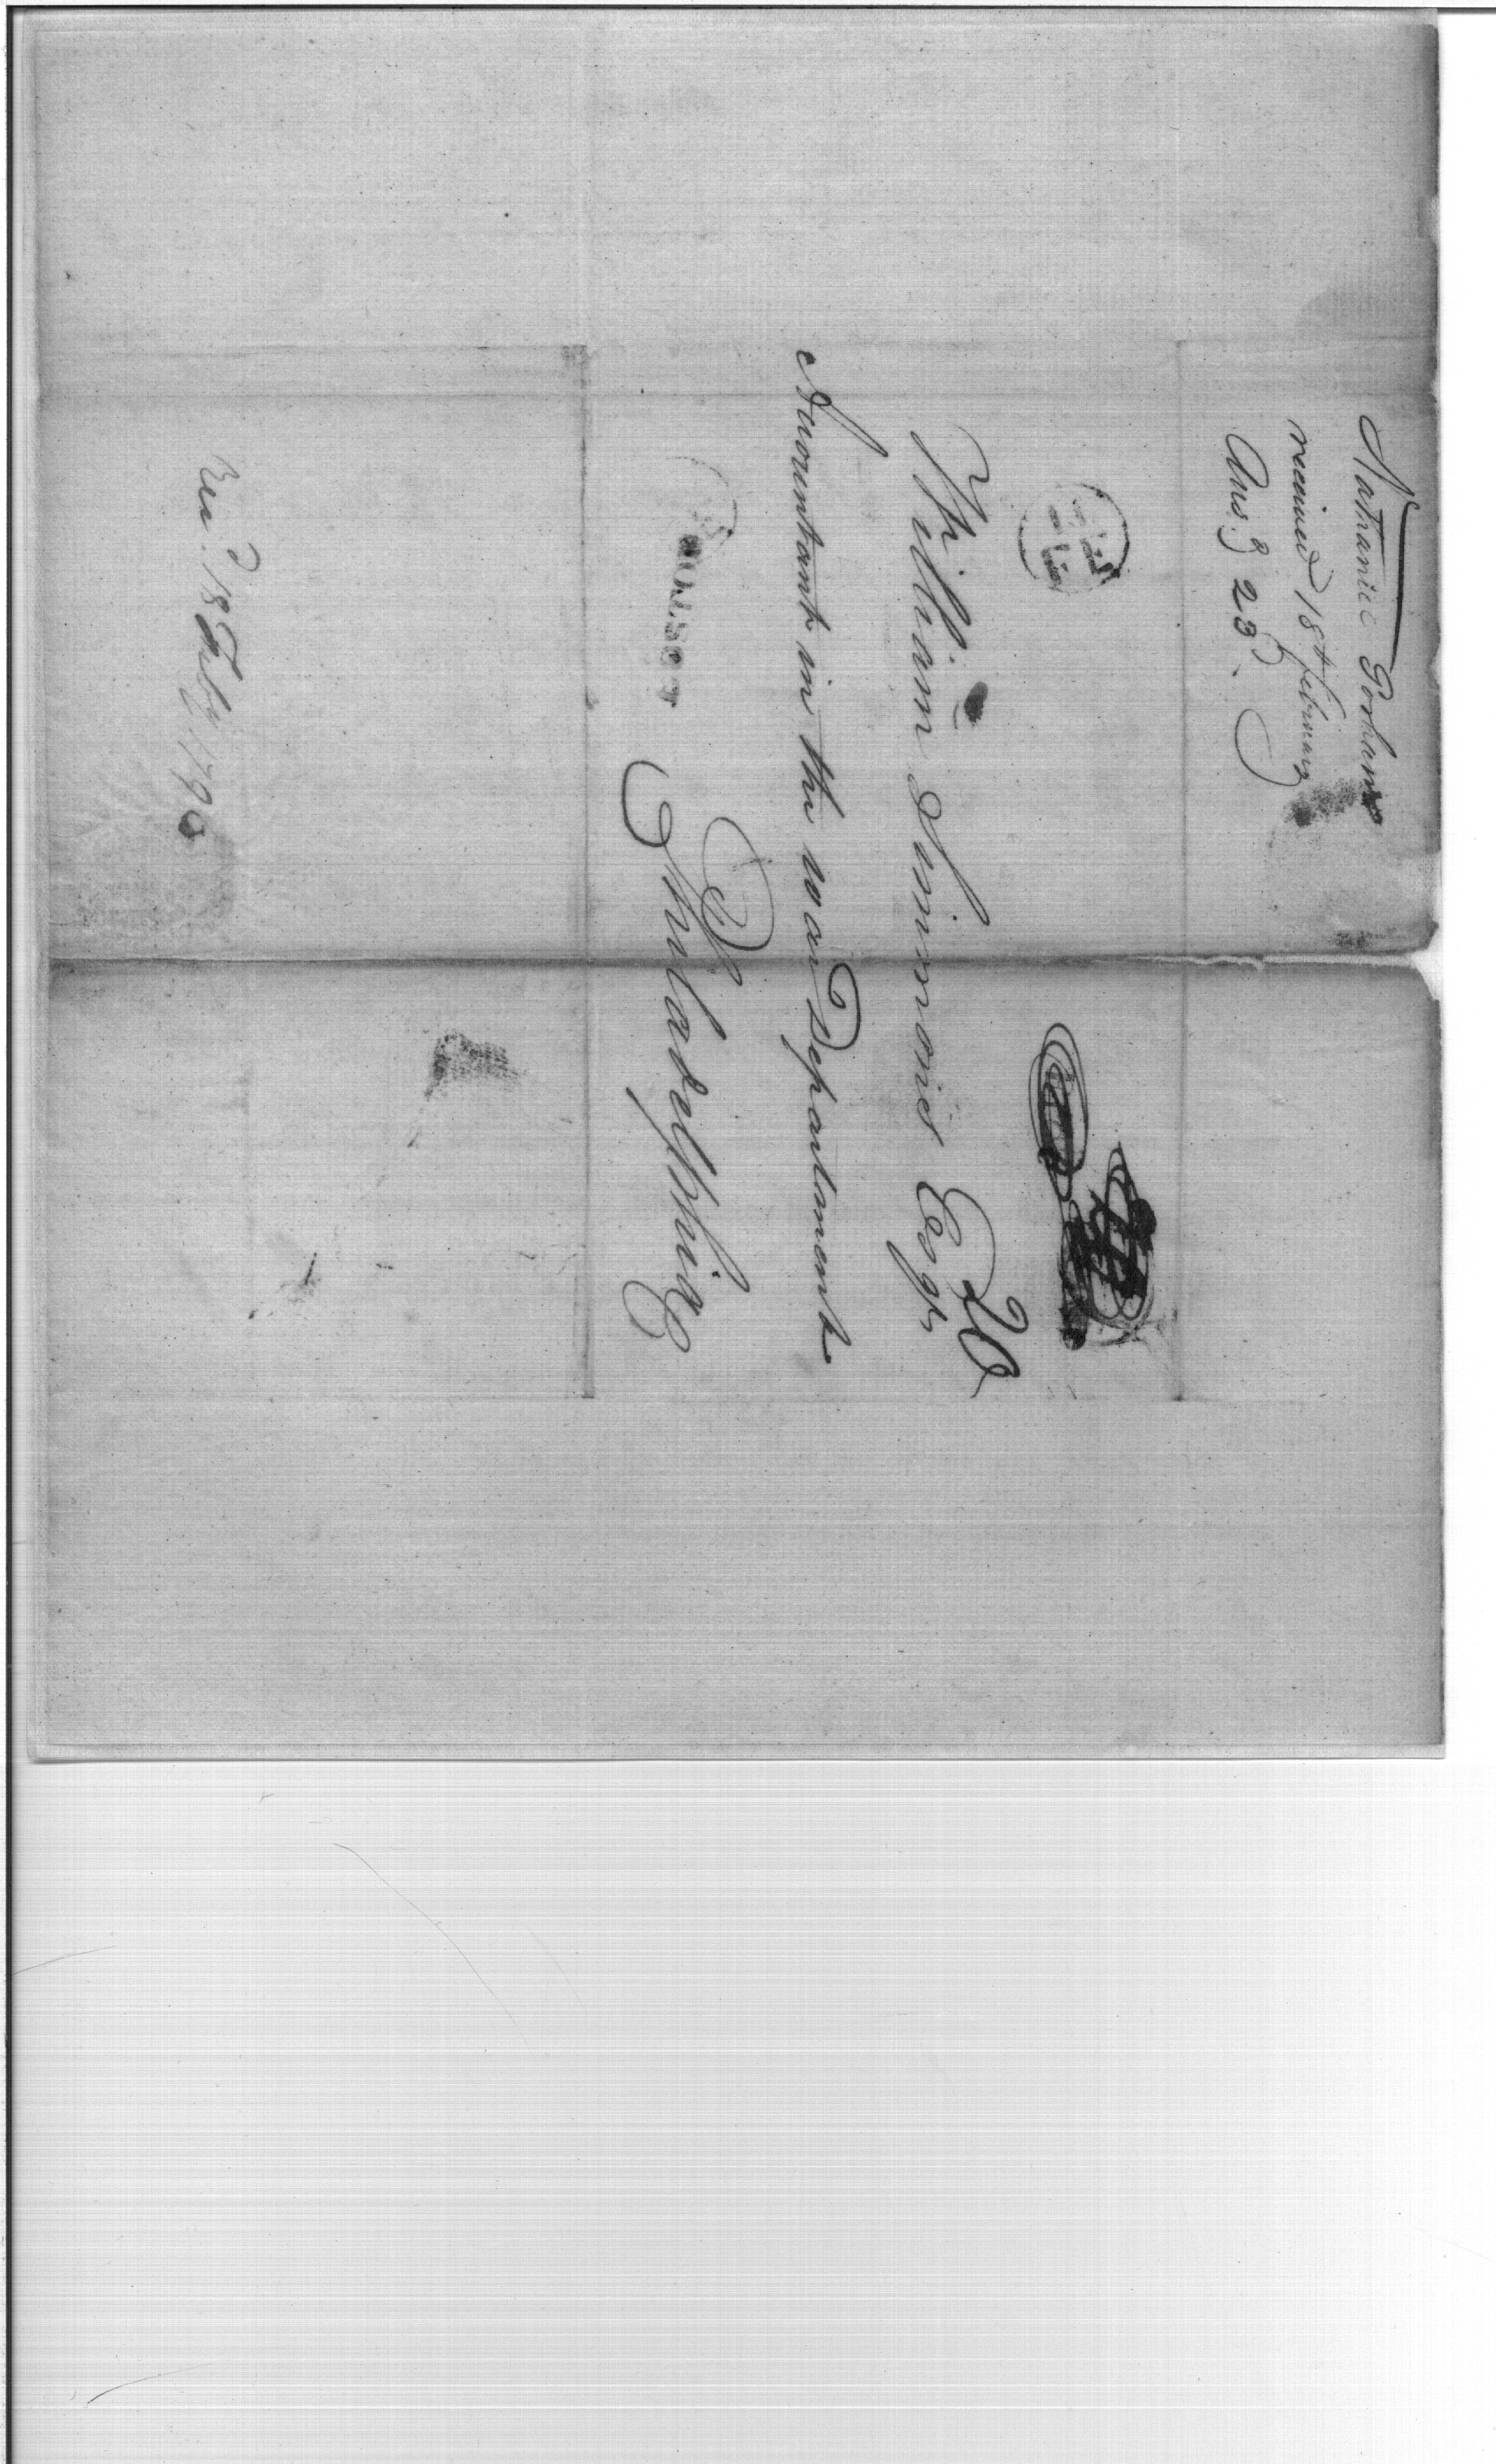 Nathaniel Gorham
received 18th february
Ans.d 23d.
20
William Simmons Esqr
Accountant in the war Department
Philadelphia
Rec.d 18 Feby 179